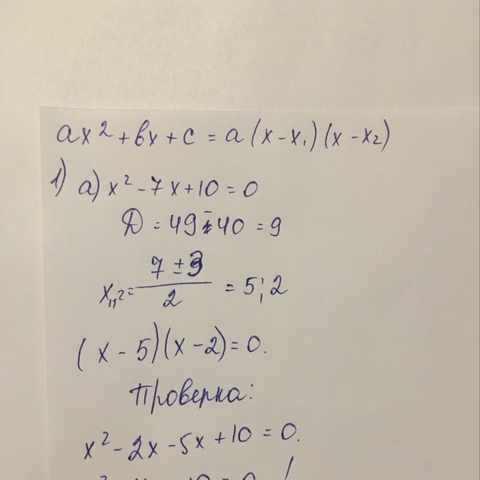 ax² + bx + c = a(x - x₁)(x - x₂)
1) a) x² - 7x + 10 = 0
D = 49 - 40 = 9
x₁,₂ = (7 ± 3)/2 = 5; 2
(x - 5)(x - 2) = 0.
Проверка:
x² - 2x - 5x + 10 = 0.